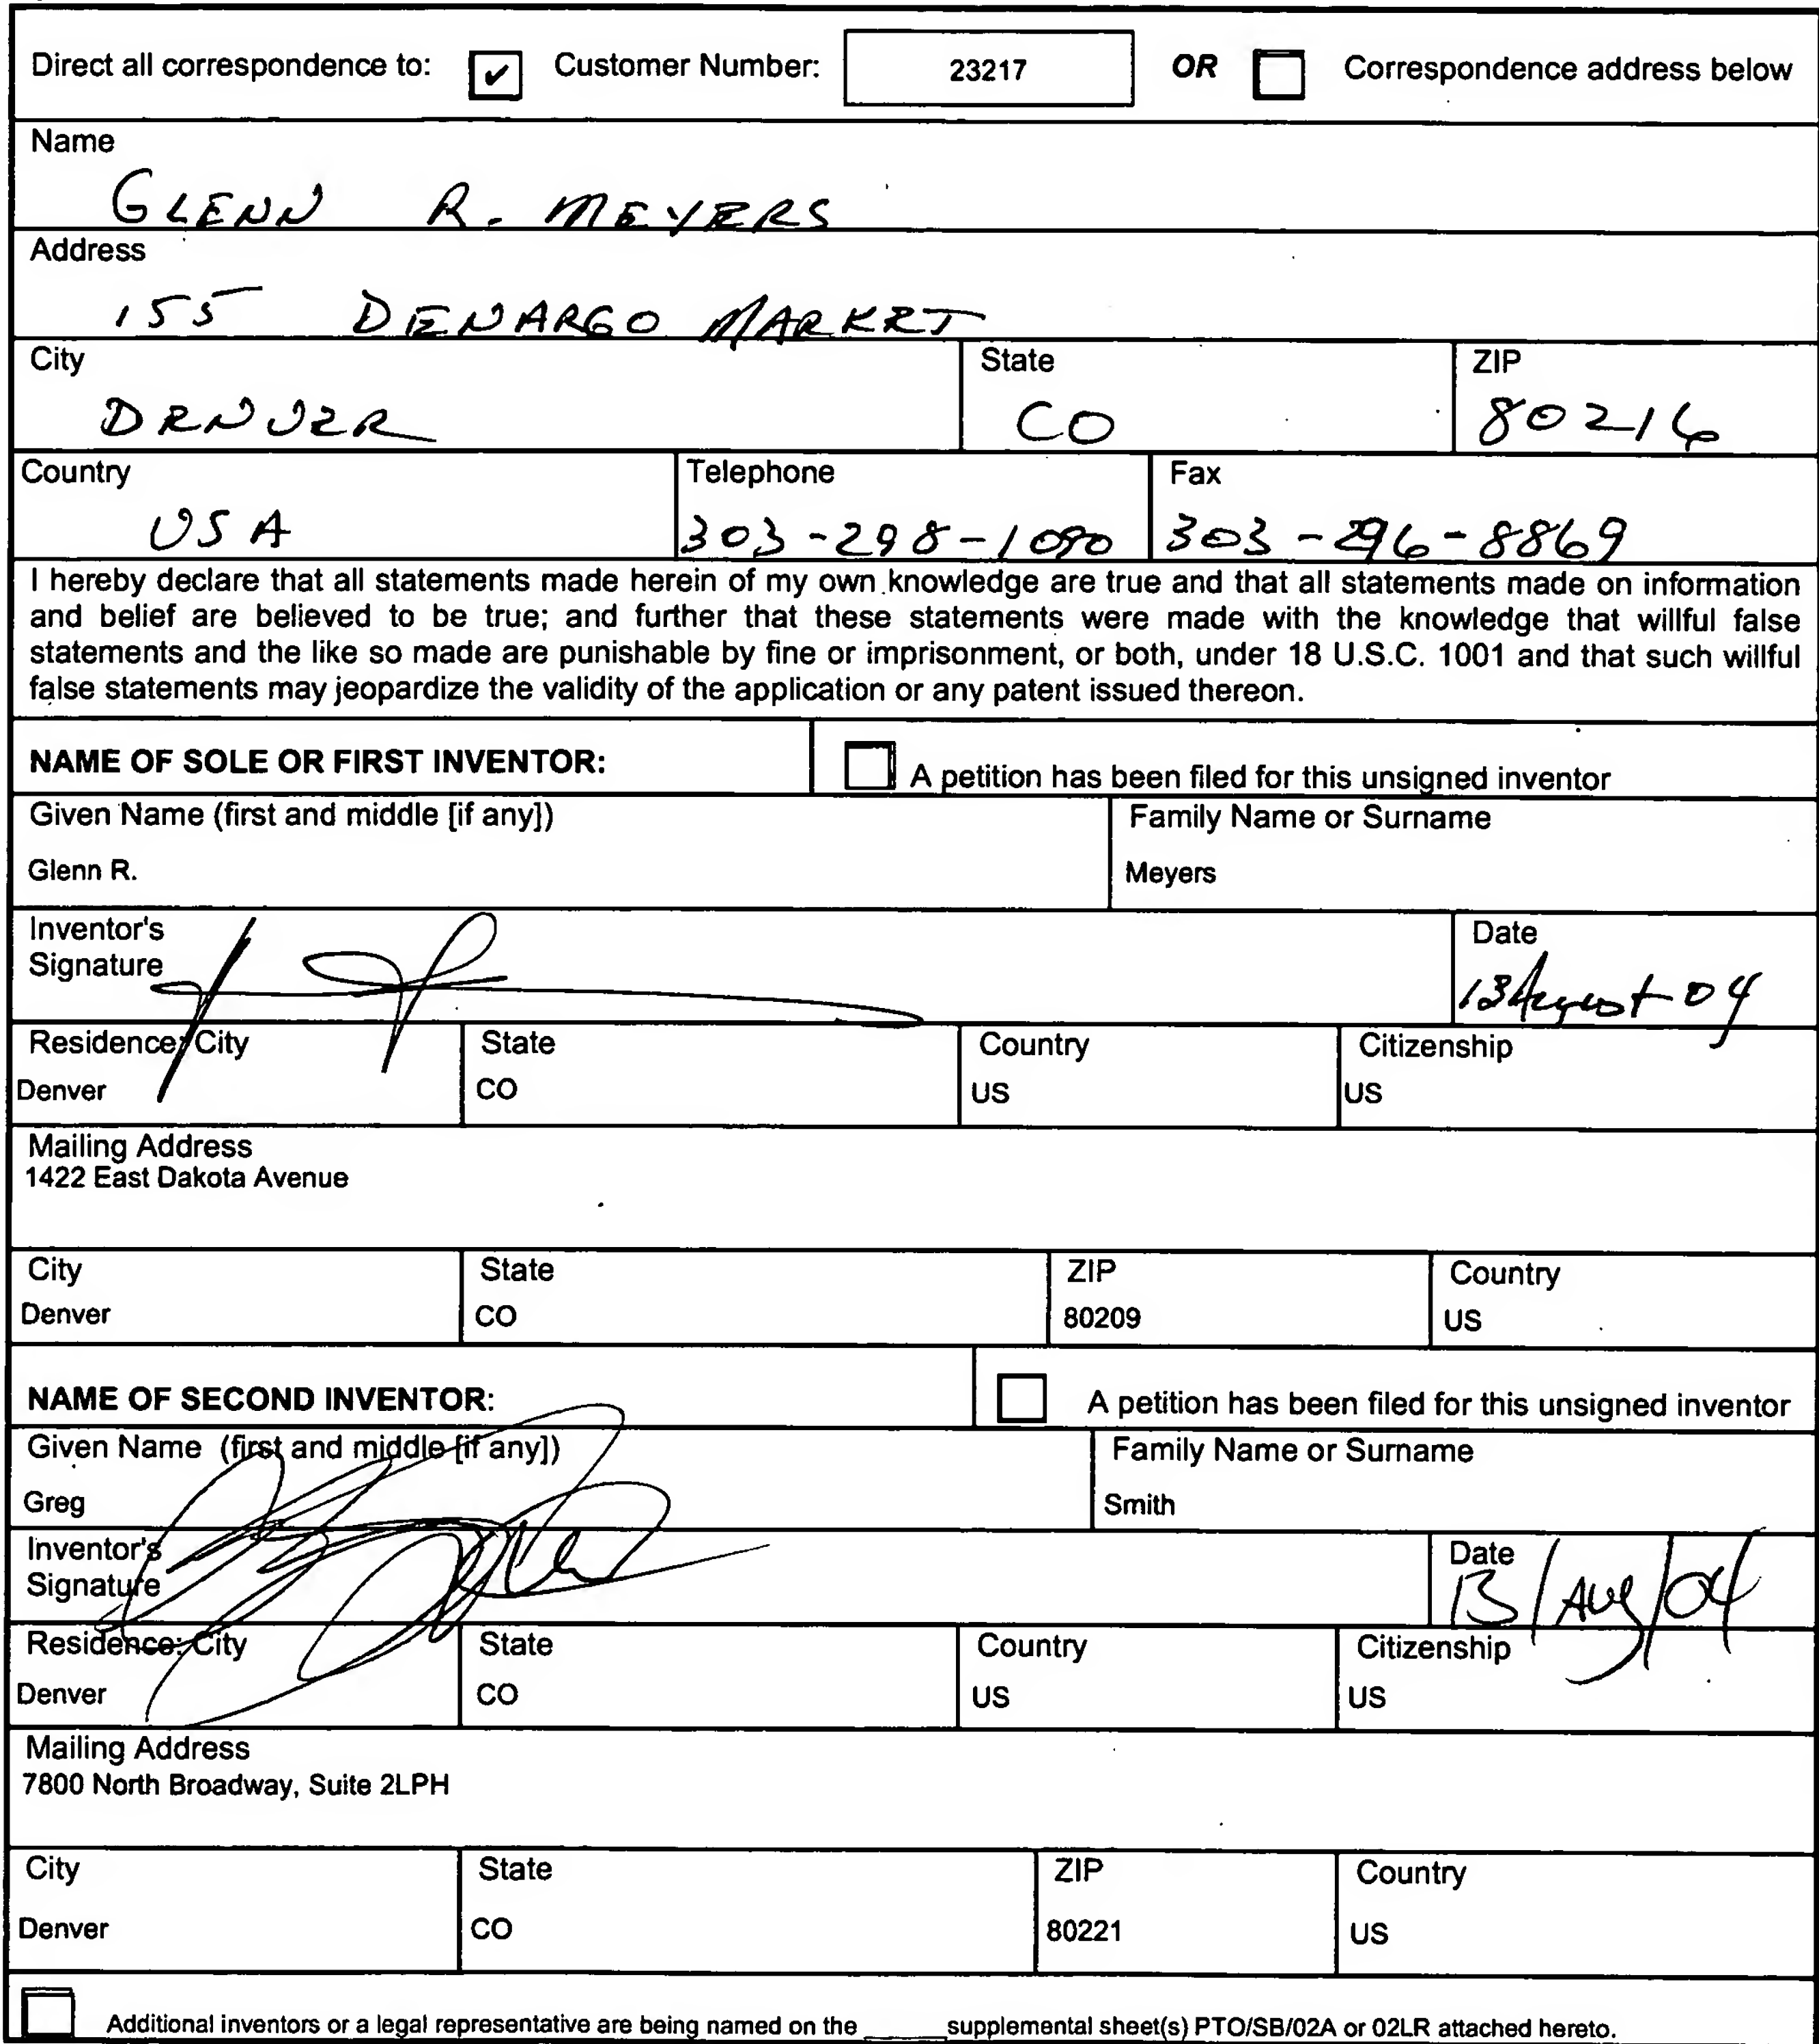 Direct all correspondence to: ✔ Customer Number: 23217 OR Correspondence address below
Name
GLENN R. MEYERS
Address
155 DENARGO MARKET
City State ZIP
DENVER CO 80216
Country Telephone Fax
USA 303-298-1090 303-296-8869
I hereby declare that all statements made herein of my own knowledge are true and that all statements made on information
and belief are believed to be true; and further that these statements were made with the knowledge that willful false
statements and the like so made are punishable by fine or imprisonment, or both, under 18 U.S.C. 1001 and that such willful
false statements may jeopardize the validity of the application or any patent issued thereon.
NAME OF SOLE OR FIRST INVENTOR: A petition has been filed for this unsigned inventor
Given Name (first and middle [if any]) Family Name or Surname
Glenn R. Meyers
Inventor's Date
Signature
13 August 04
Residence: City State Country Citizenship
Denver CO US US
Mailing Address
1422 East Dakota Avenue
City State ZIP Country
Denver CO 80209 US
NAME OF SECOND INVENTOR: A petition has been filed for this unsigned inventor
Given Name (first and middle [if any]) Family Name or Surname
Greg Smith
Inventor's Date
Signature 13/Aug/04
Residence: City State Country Citizenship
Denver CO US US
Mailing Address
7800 North Broadway, Suite 2LPH
City State ZIP Country
Denver CO 80221 US
Additional inventors or a legal representative are being named on the _____ supplemental sheet(s) PTO/SB/02A or 02LR attached hereto.